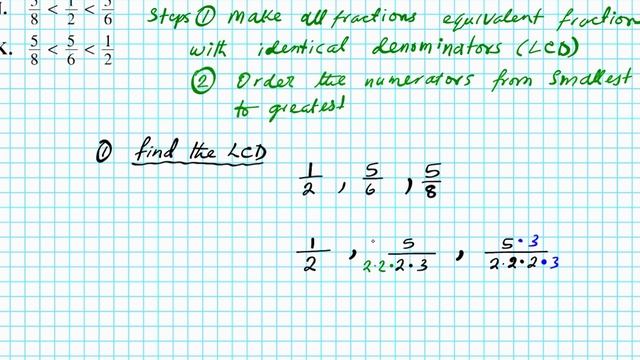 5/8 < 1/2 < 5/6
K. 5/8 < 5/6 < 1/2
Steps ① Make all fractions equivalent fraction
with identical denominators (LCD)
② Order the numerators from smallest
to greatest
① find the LCD
1/2 , 5/6 , 5/8
1/2 , 5/2·2·2·3 , 5·3/2·2·2·3